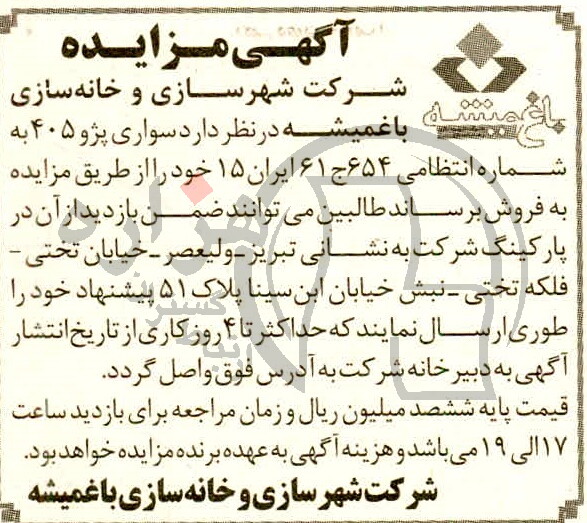 آگهی مزایده
باغمیشه
شرکت شهرسازی و خانه‌سازی
باغمیشه در نظر دارد سواری پژو ۴۰۵ به
شماره انتظامی ۶۵۴ج۶۱ ایران ۱۵ خود را از طریق مزایده
به فروش برساند طالبین می توانند ضمن بازدید از آن در
پارکینگ شرکت به نشانی تبریز ـ ولیعصر ـ خیابان تختی -
فلکه تختی ـ نبش خیابان ابن سینا پلاک ۵۱ پیشنهاد خود را
طوری ارسال نمایند که حداکثر تا ۴ روز کاری از تاریخ انتشار
آگهی به دبیر خانه شرکت به آدرس فوق واصل گردد.
قیمت پایه ششصد میلیون ریال و زمان مراجعه برای بازدید ساعت
۱۷ الی ۱۹ می باشد و هزینه آگهی به عهده برنده مزایده خواهد بود.
شرکت شهرسازی و خانه‌سازی باغمیشه
هزاره